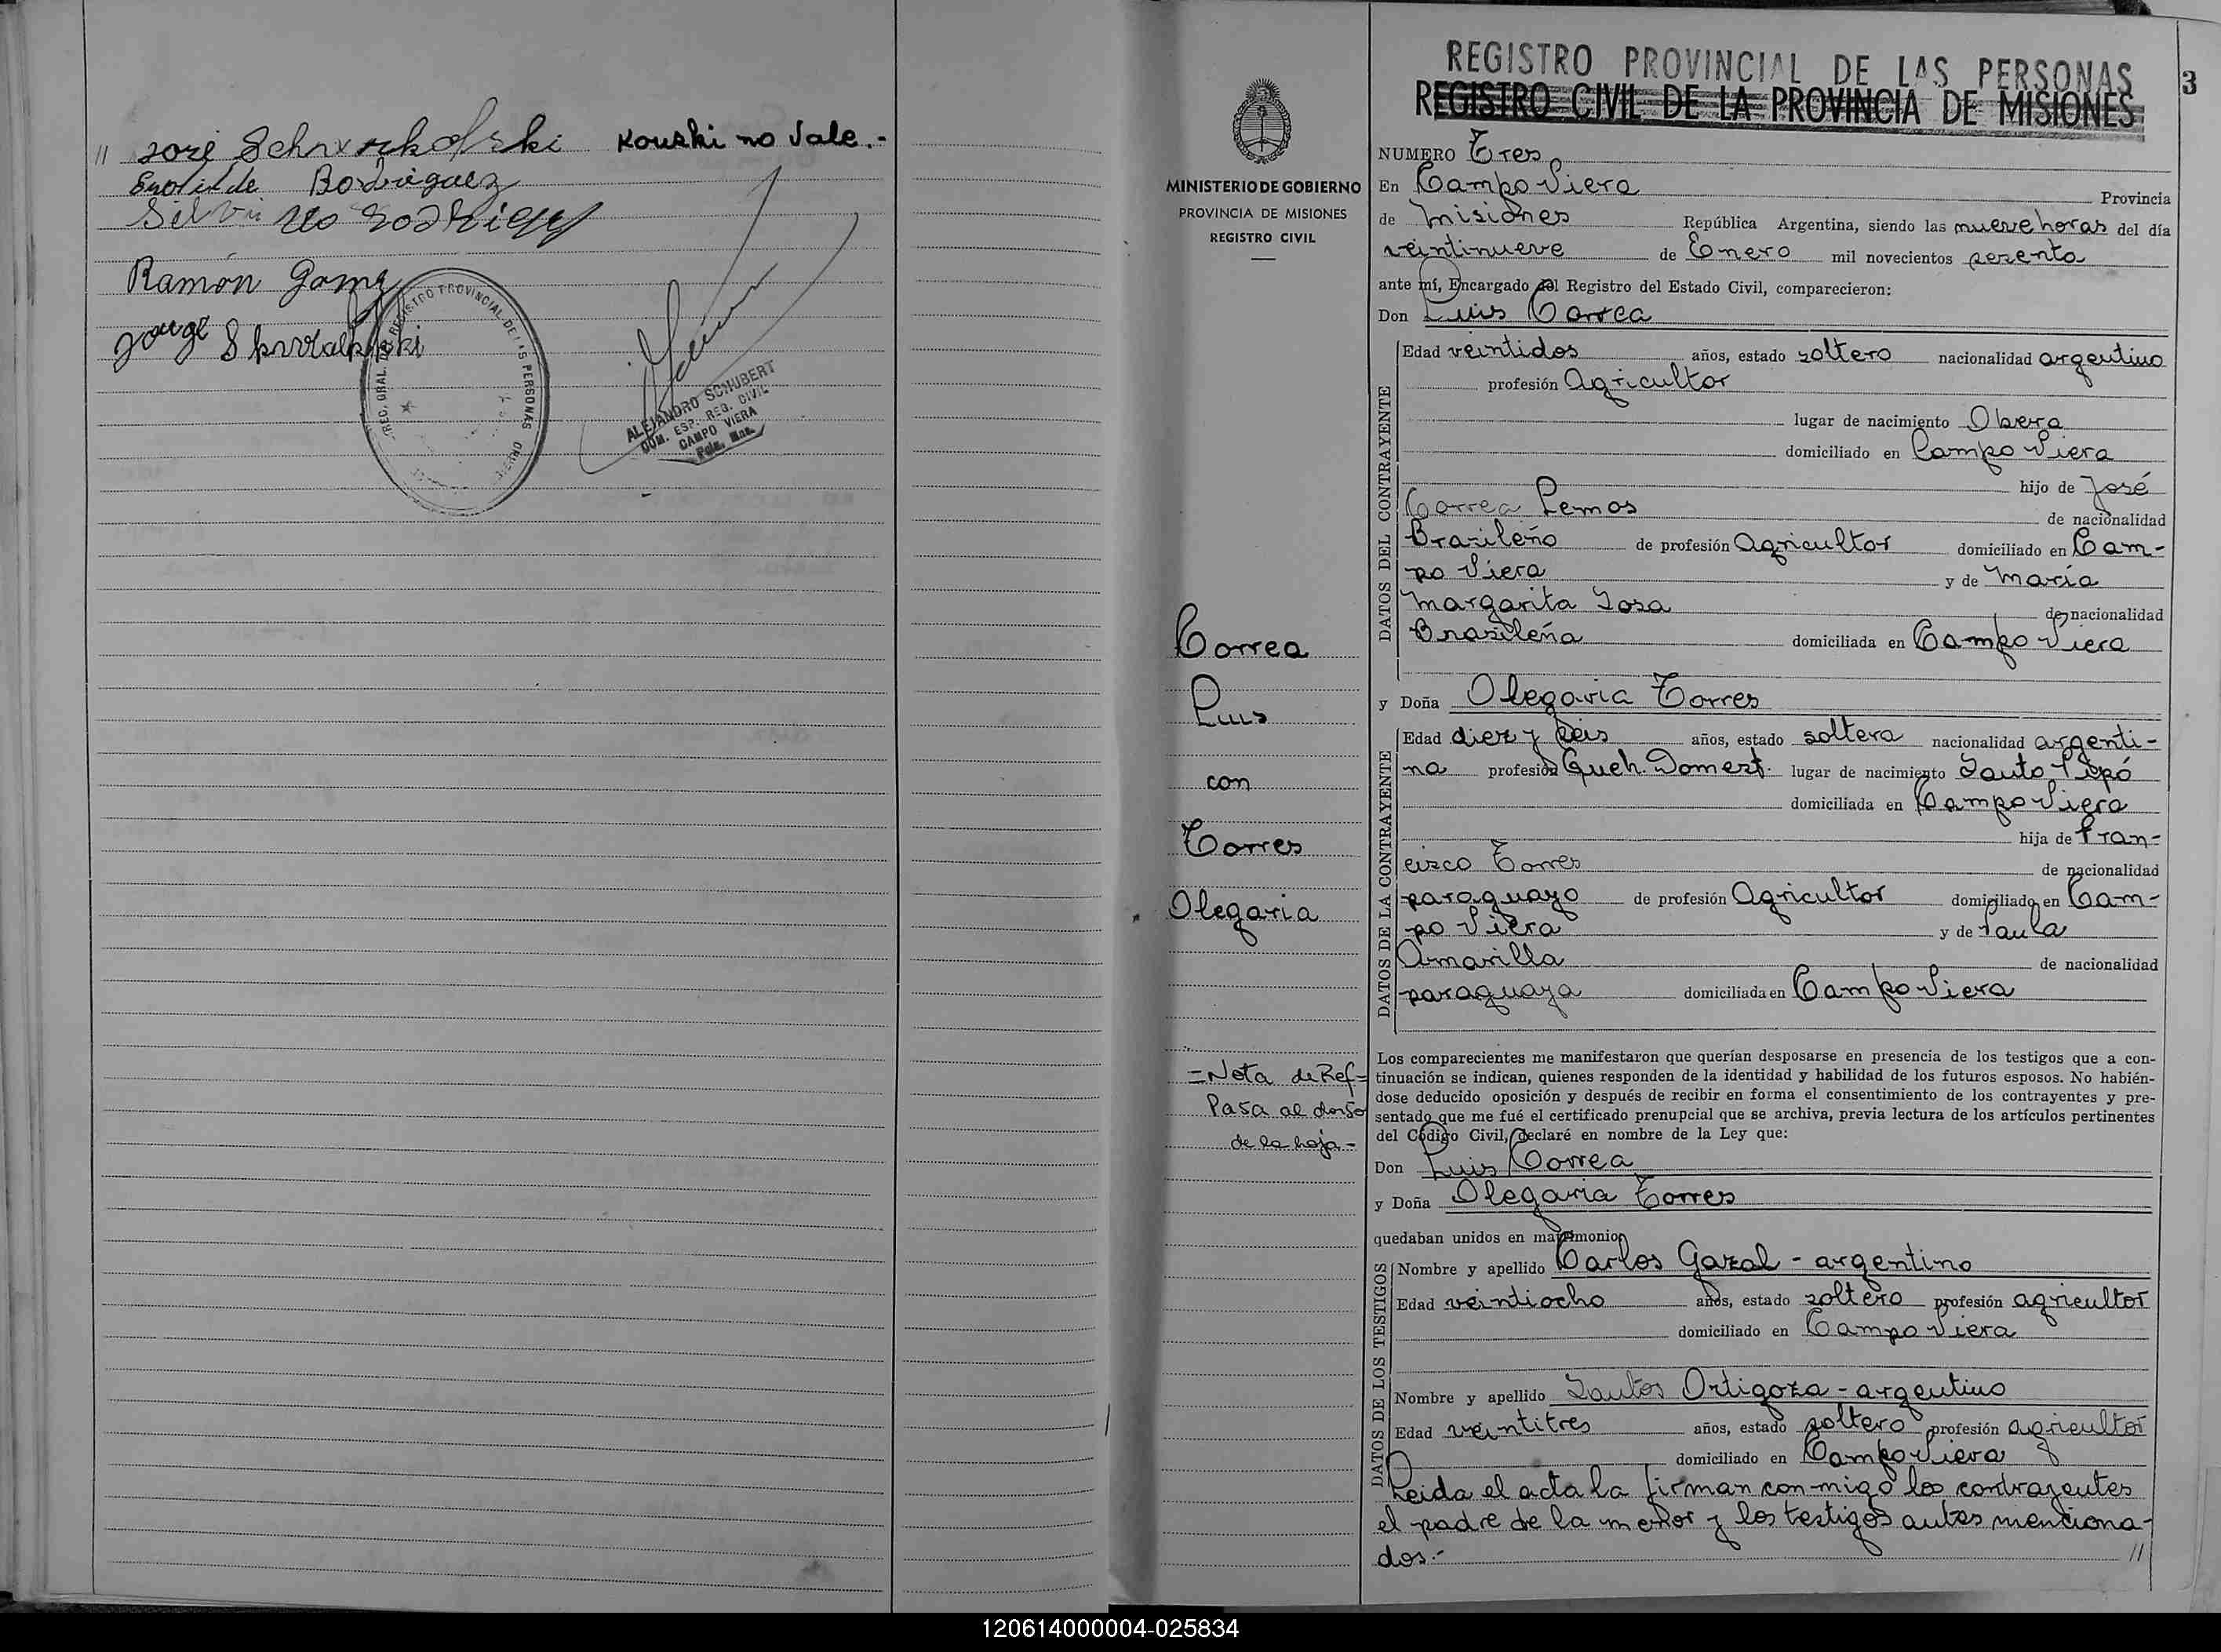 // José kouski no vale.-
Rodriguez
Silvino Rodriguez
Ramón Gomez
Jorge
REGISTRO PROVINCIAL DE LAS PERSONAS
ALEJANDRO SCHUBERT
REG. CIVIL
CAMPO VIERA
REGISTRO PROVINCIAL DE LAS PERSONAS
REGISTRO CIVIL DE LA PROVINCIA DE MISIONES
3
MINISTERIO DE GOBIERNO
PROVINCIA DE MISIONES
REGISTRO CIVIL
Correa
Luis
con
Torres
Olegaria
=Nota de Ref=
Pasa al dorso
de la hoja-
NUMERO Tres
En Campo Viera Provincia
de Misiones República Argentina, siendo las nueve horas del día
veintinueve de Enero mil novecientos sesenta
ante mí, Encargado del Registro del Estado Civil, comparecieron:
Don Luis Correa
DATOS DEL CONTRAYENTE
Edad veintidos años, estado soltero nacionalidad argentino
profesión Agricultor
lugar de nacimiento Obera
domiciliado en Campo Viera
hijo de José
Correa Lemos de nacionalidad
Brasileño de profesión Agricultor domiciliado en Cam-
po Viera y de María
Margarita Sosa de nacionalidad
Brasileña domiciliada en Campo Viera
y Doña Olegaria Torres
DATOS DE LA CONTRAYENTE
Edad diez y seis años, estado soltera nacionalidad argenti-
na profesión Queh. Domest. lugar de nacimiento Santo Pipó
domiciliada en Campo Viera
hija de Fran-
cisco Torres de nacionalidad
paraguayo de profesión Agricultor domiciliado en Cam-
po Viera y de Paula
Amarilla de nacionalidad
paraguaya domiciliada en Campo Viera
Los comparecientes me manifestaron que querían desposarse en presencia de los testigos que a con-
tinuación se indican, quienes responden de la identidad y habilidad de los futuros esposos. No habién-
dose deducido oposición y después de recibir en forma el consentimiento de los contrayentes y pre-
sentado que me fué el certificado prenupcial que se archiva, previa lectura de los artículos pertinentes
del Código Civil, declaré en nombre de la Ley que:
Don Luis Correa
y Doña Olegaria Torres
quedaban unidos en matrimonio
DATOS DE LOS TESTIGOS
Nombre y apellido Carlos Gazal - argentino
Edad veintiocho años, estado soltero profesión agricultor
domiciliado en Campo Viera
Nombre y apellido Santos Ortigoza - argentino
Edad veintitres años, estado soltero profesión agricultor
domiciliado en Campo Viera
Leida el acta la firman con migo los contrayentes
el padre de la menor y los testigos antes menciona-
dos.- //
120614000004-025834